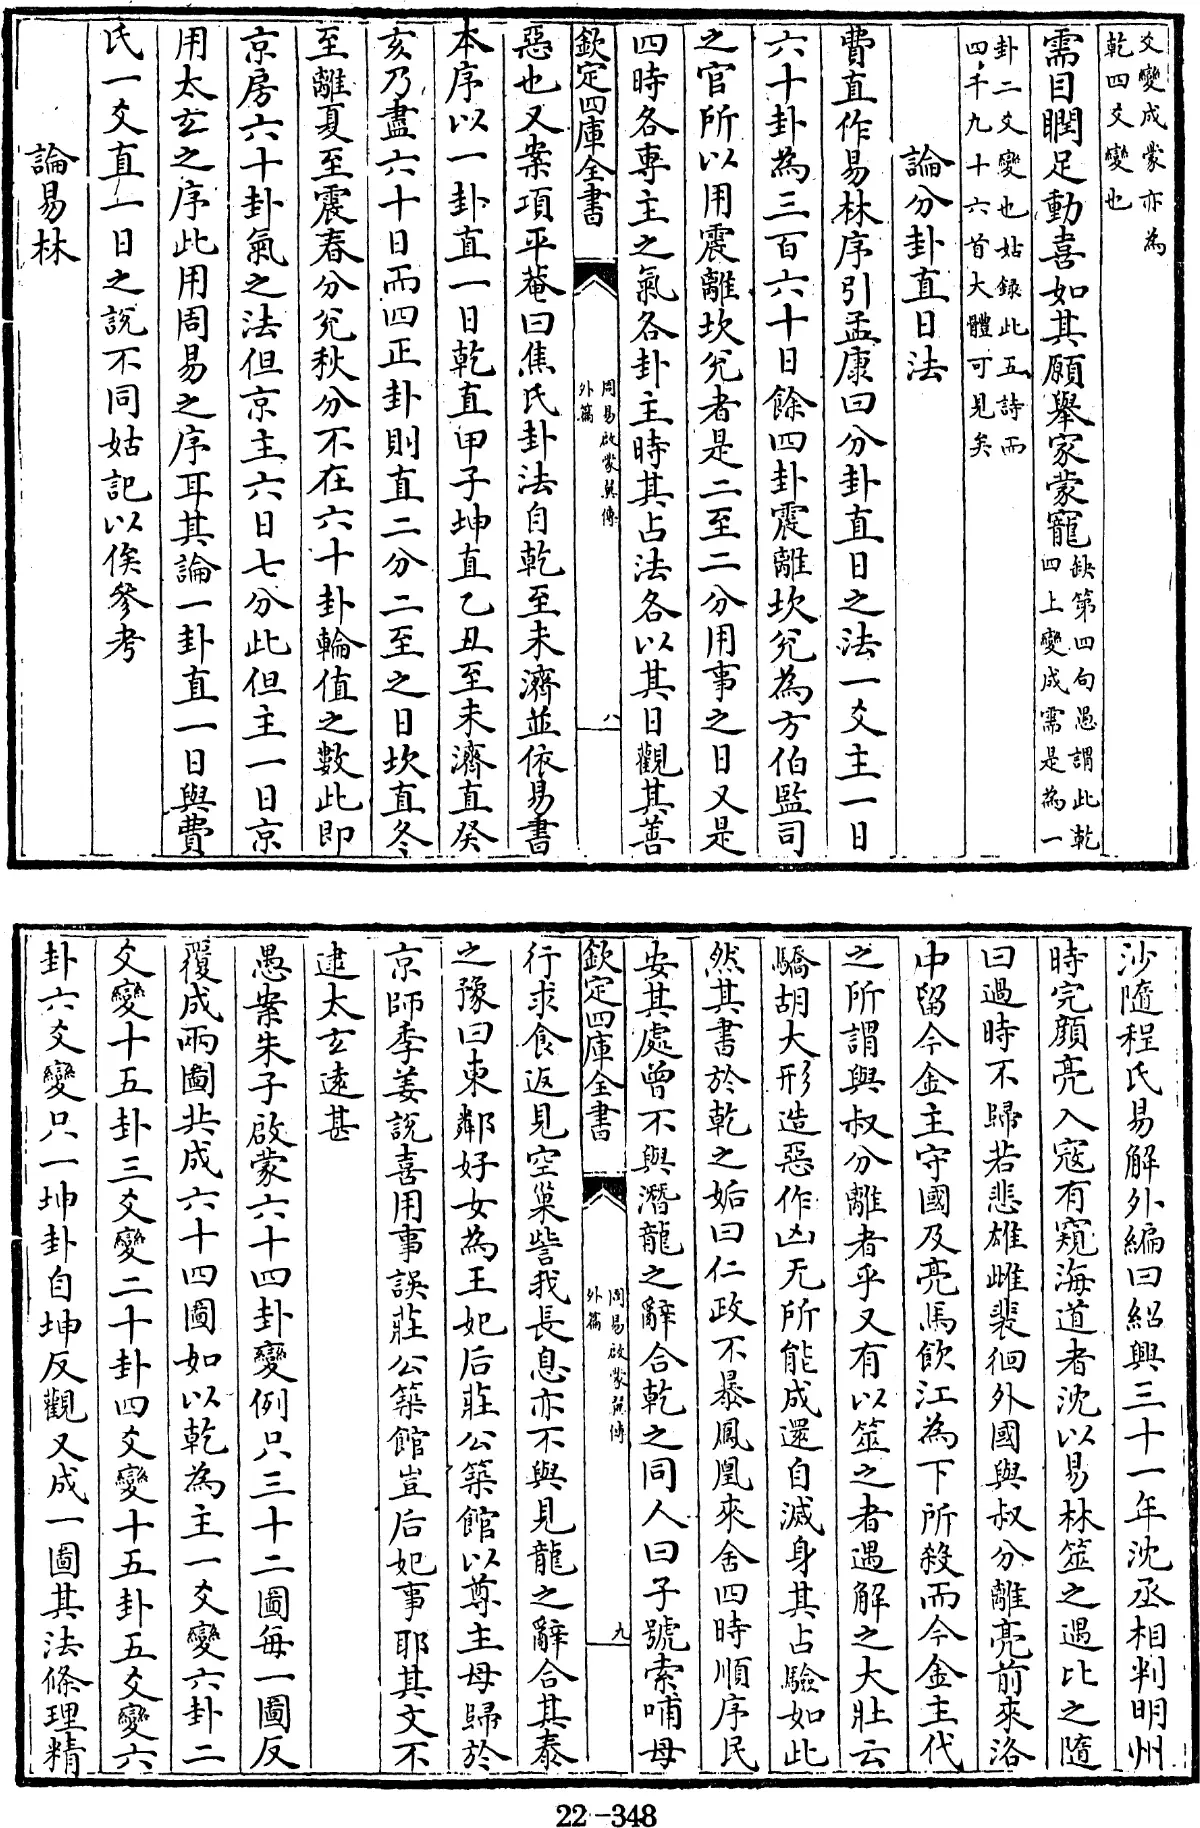 爻變成蒙亦為
乾四爻變也
需目瞤足動喜如其願舉家蒙寵
缺第四句愚謂此乾
四上變成需是為一
卦二爻變也姑錄此五詩而
四千九十六首大體可見矣
論分卦直日法
費直作易林序引孟康曰分卦直日之法一爻主一日
六十卦為三百六十日餘四卦震離坎兊為方伯監司
之官所以用震離坎兊者是二至二分用事之日又是
四時各專主之氣各卦主時其占法各以其日觀其善
欽定四庫全書
周易啟蒙翼傳
外篇
八
惡也又案項平菴曰焦氏卦法自乾至未濟並依易書
本序以一卦直一日乾直甲子坤直乙丑至未濟直癸
亥乃盡六十日而四正卦則直二分二至之日坎直冬
至離夏至震春分兊秋分不在六十卦輪值之數此即
京房六十卦氣之法但京主六日七分此但主一日京
用太玄之序此用周易之序耳其論一卦直一日與費
氏一爻直一日之說不同姑記以俟參考
論易林
沙隨程氏易解外編曰紹興三十一年沈丞相判明州
時完顏亮入寇有窺海道者沈以易林筮之遇比之隨
曰過時不歸若悲雄雌裴徊外國與叔分離亮前來洛
中留今金主守國及亮馬飲江為下所殺而今金主代
之所謂與叔分離者乎又有以筮之者遇解之大壯云
驕胡大形造惡作凶无所能成還自滅身其占驗如此
然其書於乾之姤曰仁政不暴鳳凰來舍四時順序民
安其處曾不與潛龍之辭合乾之同人曰子號索哺母
欽定四庫全書
周易啟蒙翼傳
外篇
九
行求食返見空巢訾我長息亦不與見龍之辭合其泰
之豫曰東鄰好女為王妃后莊公築館以尊主母歸於
京師季姜說喜用事誤莊公築館豈后妃事耶其文不
逮太玄遠甚
愚案朱子啟蒙六十四卦變例只三十二圖每一圖反
覆成兩圖共成六十四圖如以乾為主一爻變六卦二
爻變十五卦三爻變二十卦四爻變十五卦五爻變六
卦六爻變只一坤卦自坤反觀又成一圖其法條理精
22-348